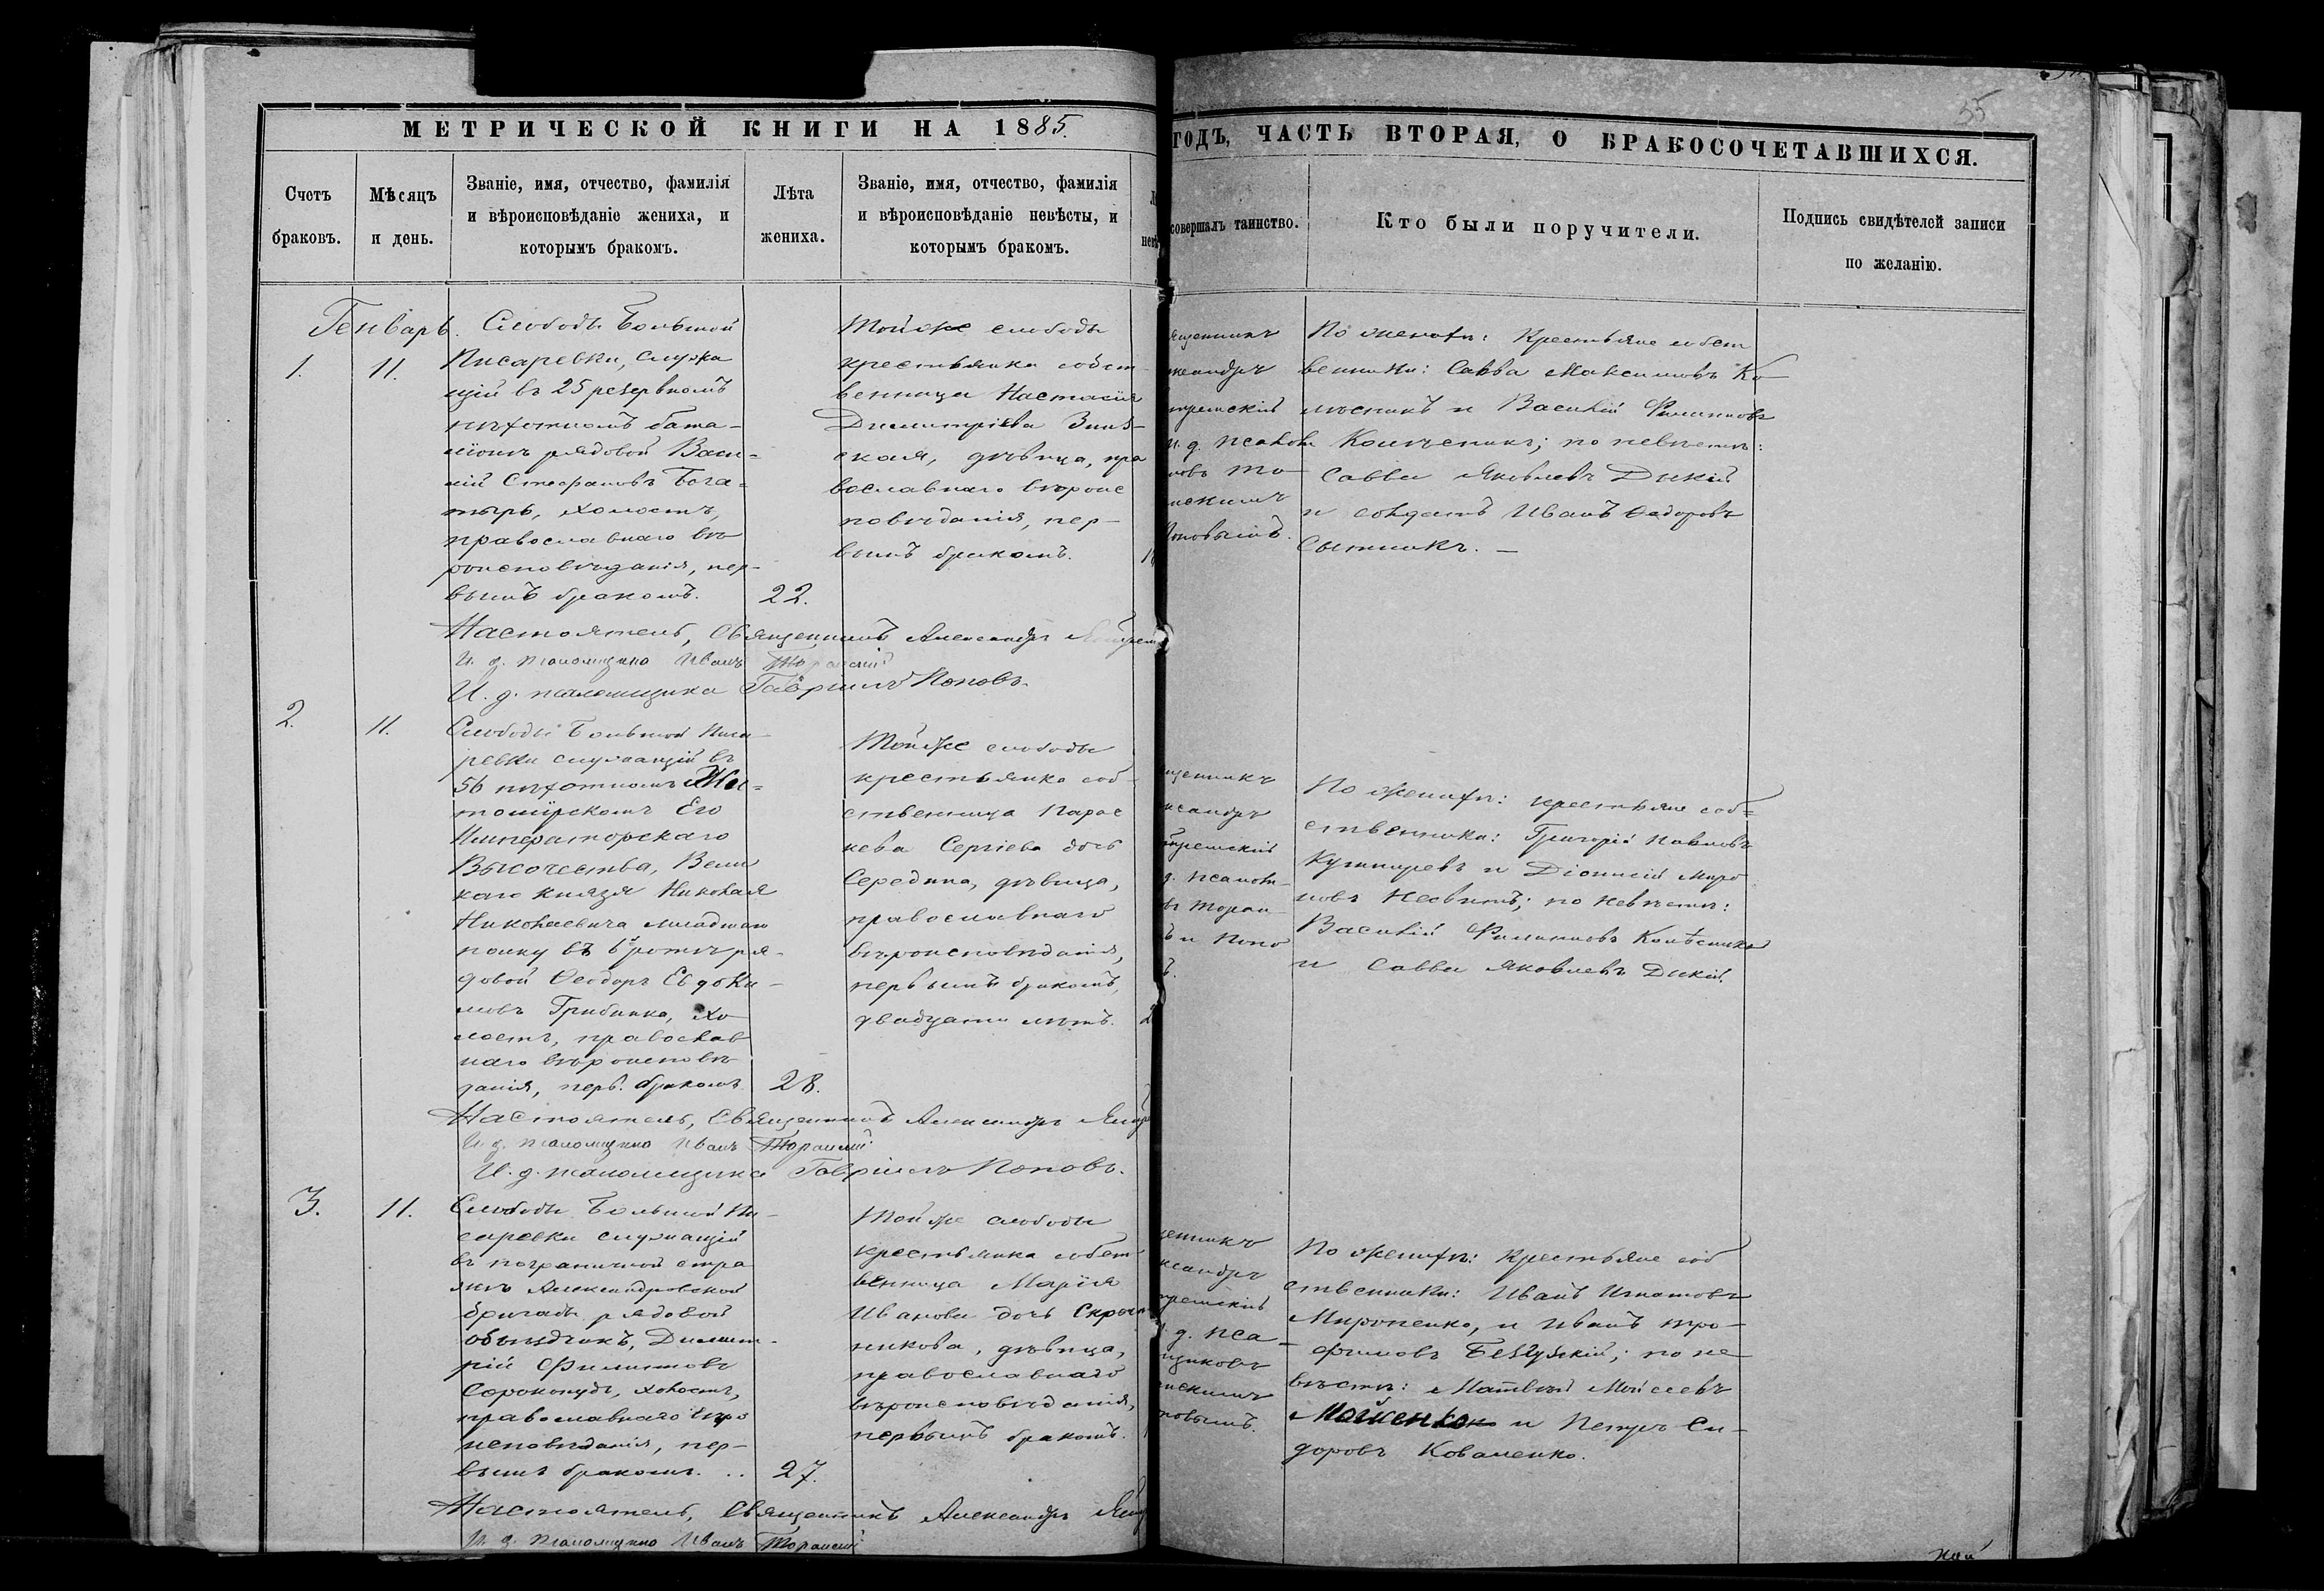 55
МЕТРИЧЕСКОЙ КНИГИ НА 1885.
ГОДЪ, ЧАСТЬ ВТОРАЯ, О БРАКОСОЧЕТАВШИХСЯ.
Счетъ браковъ.
Мѣсяцъ и день.
Званіе, имя, отчество, фамилія
и вѣроисповѣданіе жениха, и
которымъ бракомъ.
Лѣта
жениха.
Званіе, имя, отчество, фамилія
и вѣроисповѣданіе невѣсты, и
которымъ бракомъ.
совершалъ таинство.
Кто были поручители.
Подпись свидѣтелей записи
по желанію.
Генварь.
1.
11.
Слободы Большой
Писаревки, служа
щій въ 25 резервномъ
пѣхотномъ бата-
ліонѣ рядовой Васи-
лій Стефановъ Бога-
тырь, холостъ,
православнаго вѣ
роисповѣданія, пер-
вымъ бракомъ.
22.
Тойже слободы
крестьянка собст-
венница Настасія
Димитріева
ская, дѣвица, пра
вославнаго вѣроис
повѣданія, пер-
вымъ бракомъ.
ященникъ
лександръ
и. д. псалом
Поповымъ.
По женихѣ: крестьяне собст
венники: Савва Максимовъ Ко
лѣсникъ и Василій Филиповъ
Колѣсникъ; по невѣстѣ:
Савва Яковлевъ Дикій
и солдатъ Иванъ Ѳедоровъ
Сытникъ. —
Настоятель, Священникъ Александръ
И. д. псаломщика Иванъ Торанскій
И. д. псаломщика Гавріилъ Поповъ.
2.
11.
Слободы Большой Писа
ревки служащій въ
56 пѣхотномъ Жи-
томірскомъ Его
Императорскаго
Высочества, Вели
каго Князя Николая
Николаевича младшаго
полку въ 6й ротѣ ря-
довой Ѳеодоръ Евдоки-
мовъ Грибинка, хо
лостъ, православ
наго вѣроисповѣ
данія, перв. бракомъ
28.
Тойже слободы
крестьянка соб-
ственница Парас
кева Сергіева дочь
Середина, дѣвица,
православнаго
вѣроисповѣданія,
первымъ бракомъ,
двадцати лѣтъ.
щенникъ
ксандръ
д. псалом-
и Попо
По женихѣ: крестьяне соб-
ственники: Григорій Павловъ
Кушниревъ и Діонисій Миро
новъ Несвитъ; по невѣстѣ:
Василій Филиповъ Колѣсникъ
и Савва Яковлевъ Дикій.
Настоятель, Священникъ Александръ
И. д. псаломщика Иванъ Торанскій
И. д. псаломщика Гавріилъ Поповъ.
3.
11.
Слободы Большой Пи-
саревки служащій
въ пограничной стра
жѣ Александровской
бригады рядовой
объѣздчикъ, Димит-
рій Филиповъ
Сорокопудъ, холостъ,
православнаго вѣро
исповѣданія, пер-
вымъ бракомъ. ..
27.
Тойже слободы
крестьянка собст
венница Марія
Иванова дочь
никова, дѣвица,
православнаго
вѣроисповѣданія,
первымъ бракомъ.
щенникъ
ксандръ
д. пса-
щиковъ
повымъ.
По женихѣ: крестьяне соб
ственники: Иванъ Игнатовъ
Мироненко, и Иванъ Тро-
фимовъ Безгузскій; по не
вѣстѣ: Матвѣй Моисеевъ
Мойсенко и Петръ Си-
доровъ Коваленко.
Настоятель, Священникъ Александръ
И. д. псаломщика Иванъ Торанскій